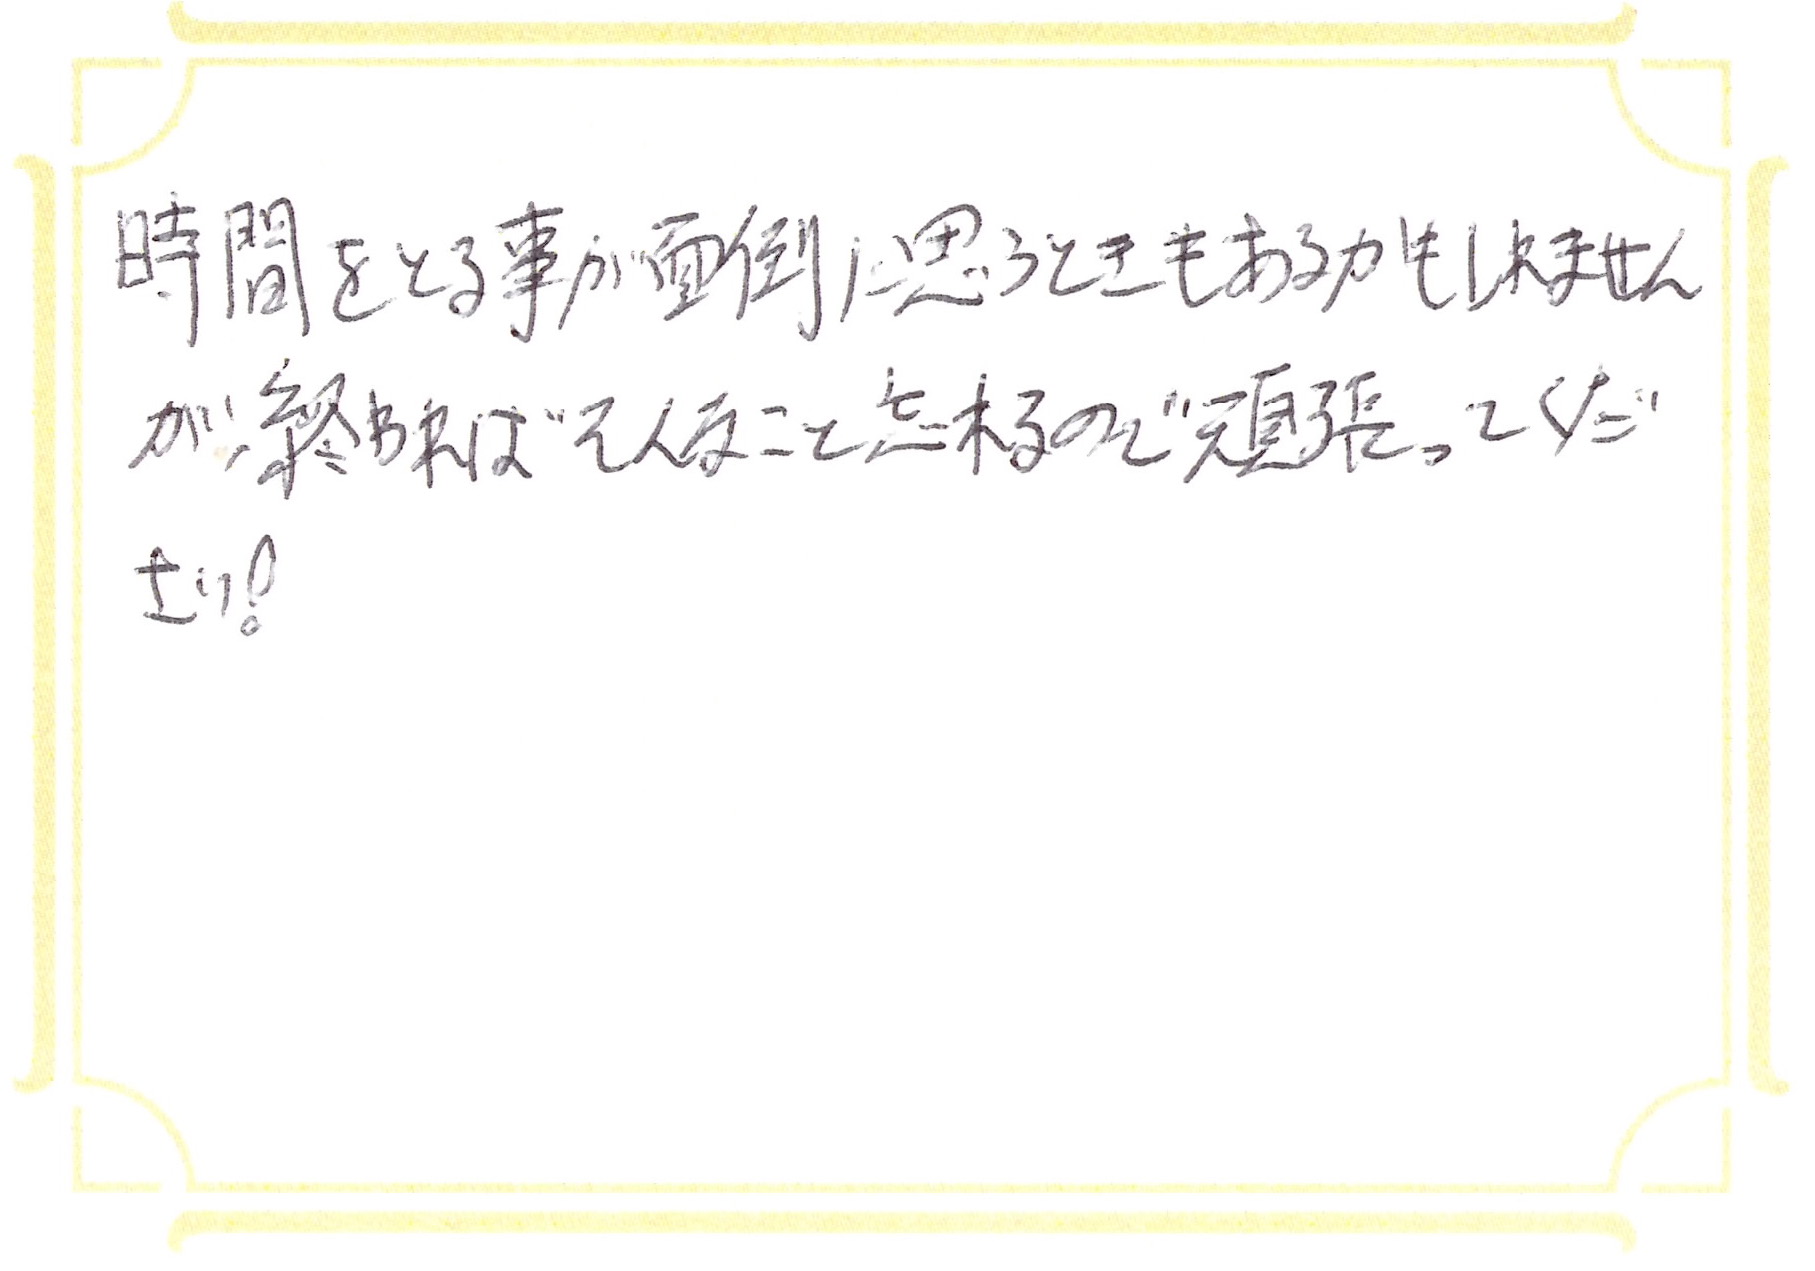 時間をとる事が面倒に思うときもあるかもしれません
が、終わればそんなこと忘れるので頑張ってくだ
さい!